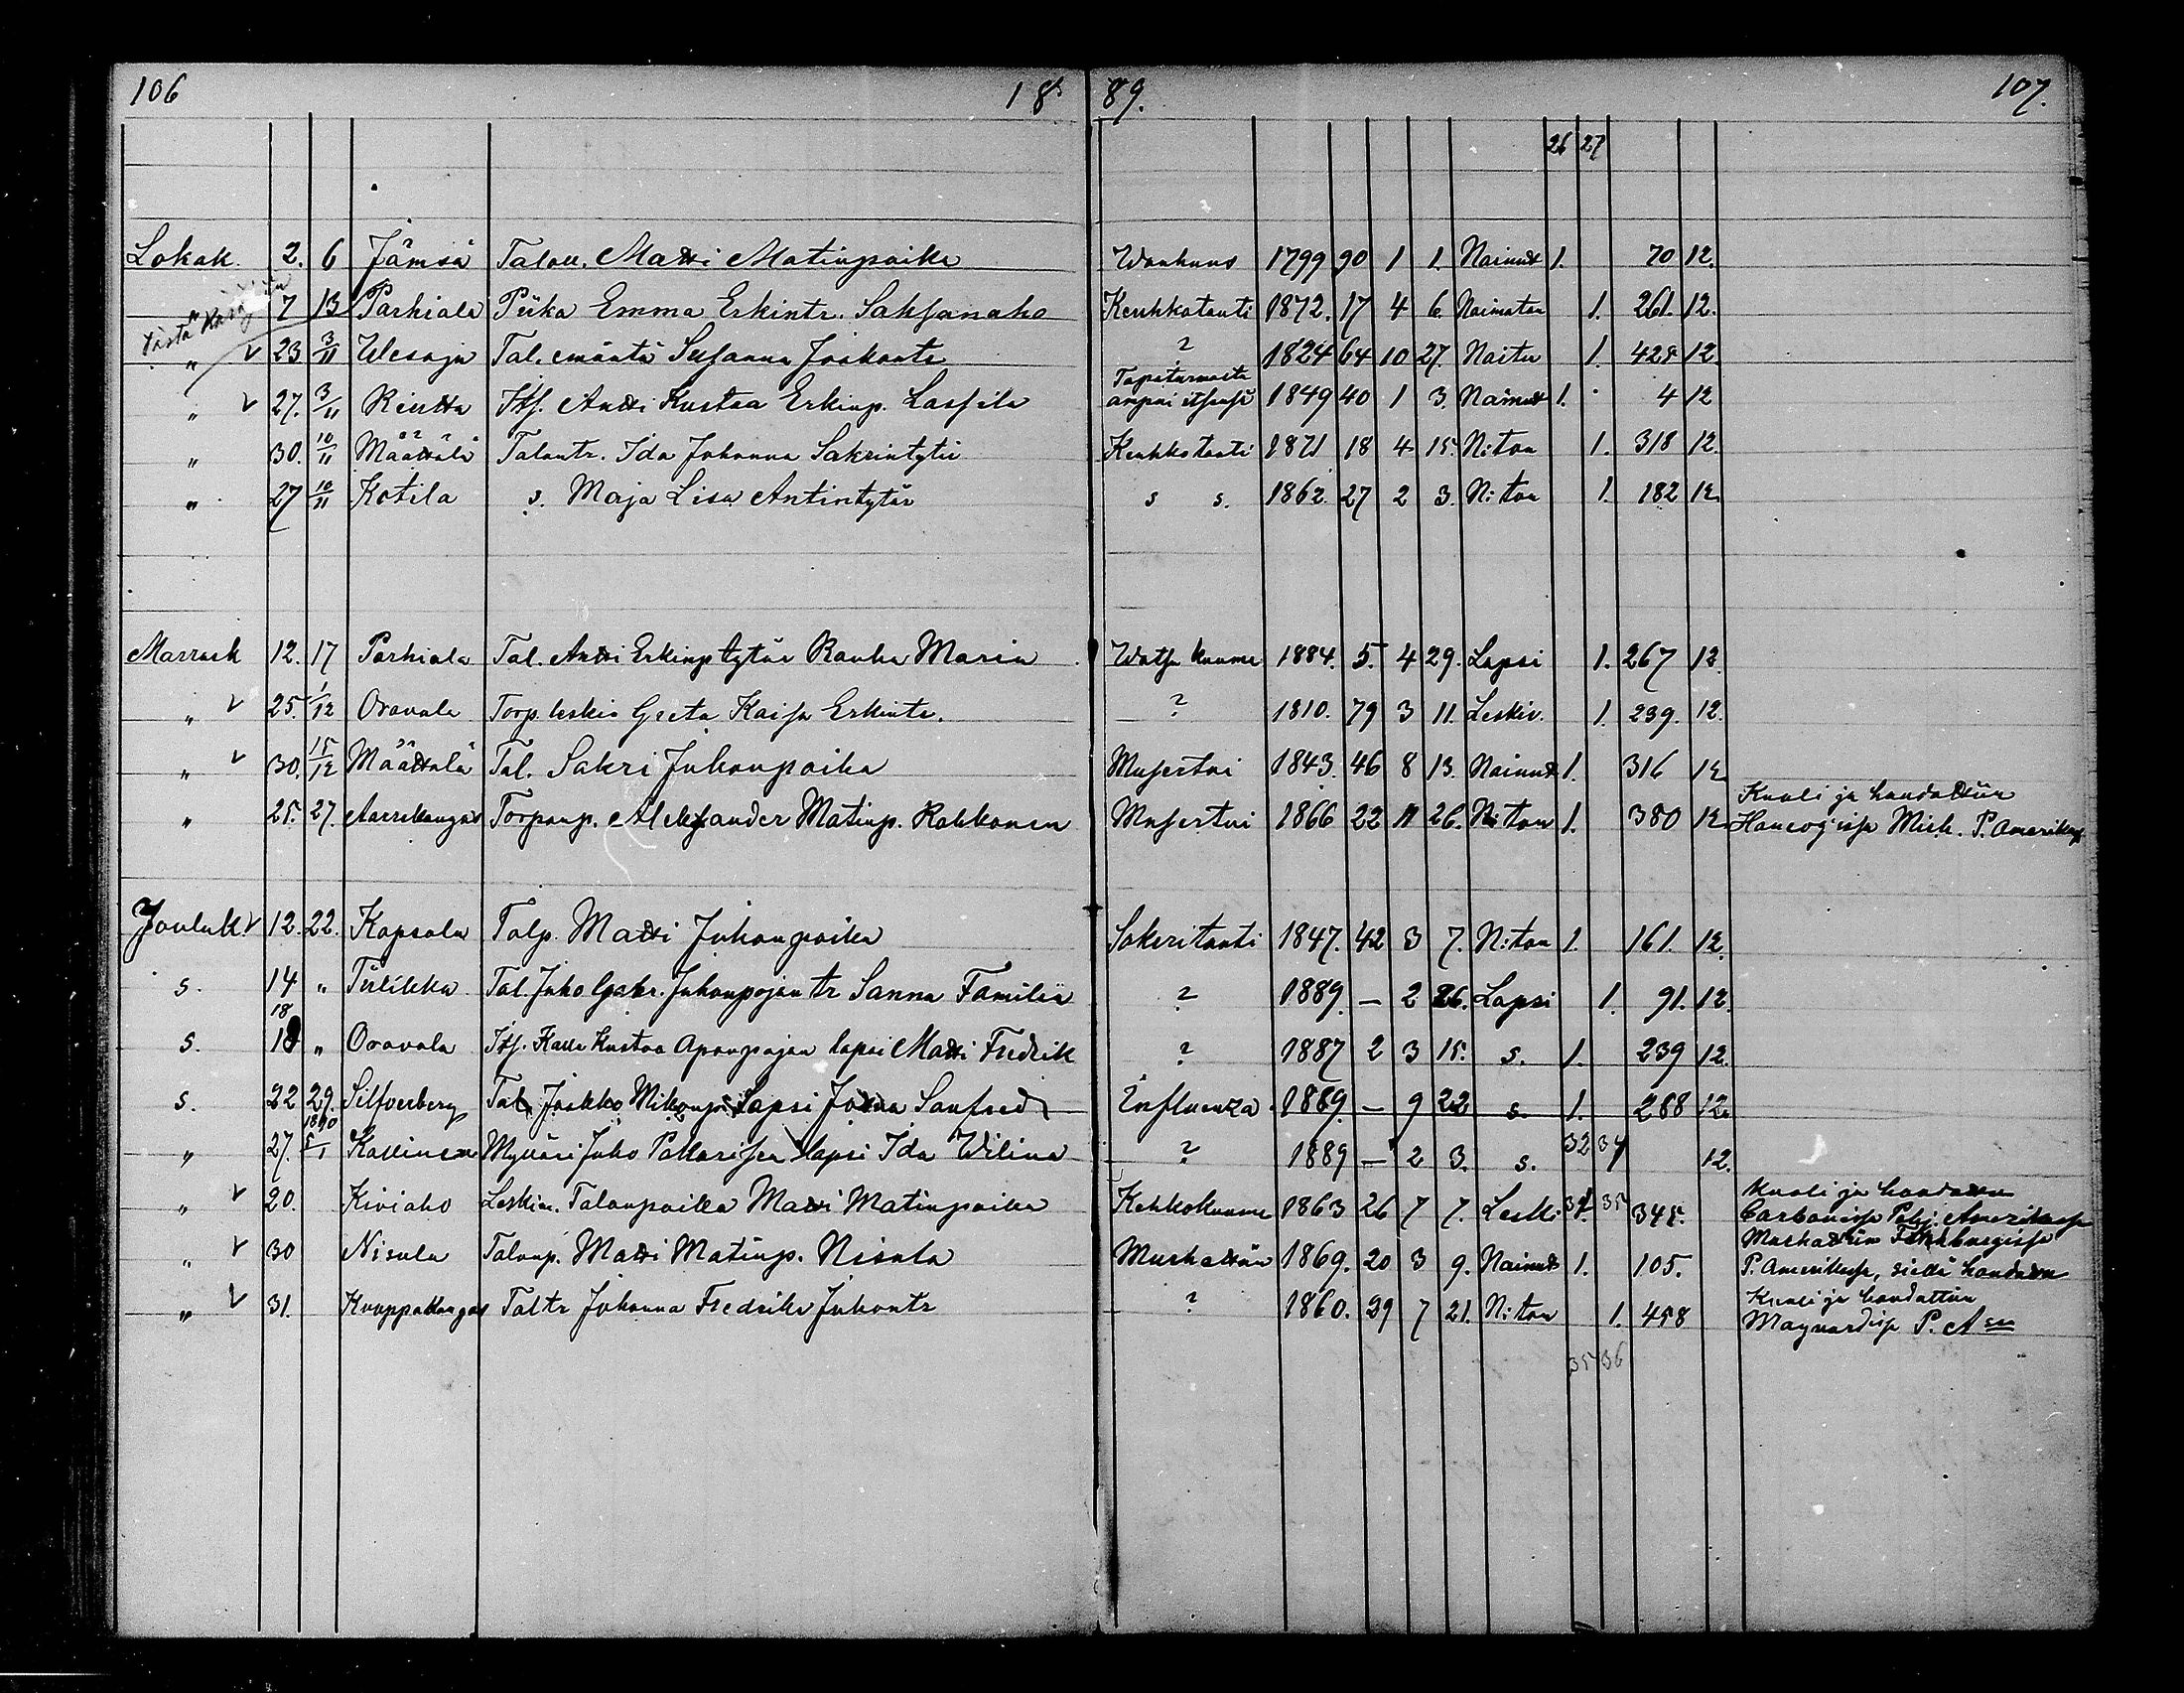 106 18 89. 107.
26 27
Lokak. 2. 6 Jämsä Talou. Matti Matinpoika Wanhuus 1799 90 1 1. Nainut 1. 70 12.
Tästä
" 7 13 Parhiala Piika Emma Erkintr. Saksanaho Keuhkotauti 1872. 17 4 6. Naimatoin 1. 261. 12.
" v 23 3/11 Ulesoja Tal. emäntä Susanna Jaakontr ? 1824 64 10 27. Naitu 1. 424 12
" v 27. 3/11 Rintta Its. Antti Kustaa Erkinp. Lassila Tapaturmasta ampui itsensä 1849 40 1 3. Nainut 1. 4 12
" 30. 10/11 Määttälä Talontr. Ida Johanna Sakrintytär Keuhkotauti 1871 18 4 15. N:ton 1. 318 12.
" 27 10/11 Kotila s. Maja Lisa Antintytär s s. 1862. 27 2 3. N:ton 1. 182 12.
Marrask 12. 17 Parhiala Tal. Antti Erkinp tytär Rauha Maria Watsa kuume 1884. 5. 4 29. Lapsi 1. 267 12.
" v 25. 1/12 Oravala Torp. leskis Greta Kaisa Erkintr. ? 1810. 79 3 11. Leskiv. 1. 239. 12.
" v 30. 15/12 Määttälä Tal. Sakri Juhonpoika Musertui 1843. 46 8 13. Nainut 1. 316 12
" 25. 27. Aarrekangas Torpanp. Aleksander Matinp. Rahkonen Musertui 1866 22 11 26. N:ton 1. 380 12. Kuoli ja haudattiin
Hancog'issa Mich. P. Amerikas.
Jouluk. v 12. 22. Kopsala Talp. Matti Juhonpoika Sokeritauti 1847. 42 3 7. N:ton 1. 161. 12.
s. 14 " Tiilikka Tal. Juho Gabr. Juhonpojan tr Sanna Familia ? 1889. — 2 26. Lapsi 1. 91. 12.
18
s. 18 " Oravala Its. Kalle Kustaa Aponpojan lapsi Matti Fredrik ? 1887 2 3 15. s. 1. 239 12.
s. 22 29. Silfverberg Tal. Jaakko Mikonp. Lapsi Sanfred Influenza 1889. — 9 22 s. 1. 288 12.
1890
" 27. 5/1 Kallinen Mylläri Juho Pakarisen lapsi Ida Wilina ? 1889 — 2 3. s. 32 34 12.
" v 20. Kiviaho Leskim. Talonpoika Matti Matinpoika Kehkokuume 1863 26 7 7. Leski 34. 35 345. Kuoli ja haudattu
Carbonissa Pohj. Amerikassa
" v 30 Nisula Talonp. Matti Matinp. Nisula Murhattiin 1869. 20 3 9. Nainut 1. 105. Murhattiin
P. Amerikassa, siellä haudattu
" v 31. Knuppakangas Tal tr Johanna Fredrika Juhontr ? 1860. 29 7 21. N:ton 1. 458 Kuoli ja haudattiin
Maynardissa P. A
35 36